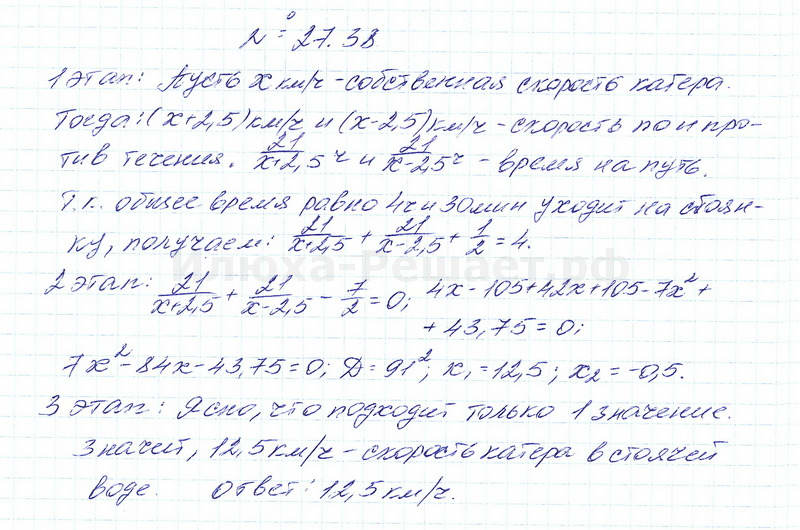 № 27.38
1 этап: Пусть x км/ч - собственная скорость катера.
Тогда: (x+2,5) км/ч и (x-2,5) км/ч - скорость по и про-
тив течения. 21/(x+2,5) ч и 21/(x-2,5) ч - время на путь.
Т.к. общее время равно 4ч и 30мин уходит на стоян-
ку, получаем: 21/(x+2,5) + 21/(x-2,5) + 1/2 = 4.
Илюха-Решает.рф
2 этап: 21/(x+2,5) + 21/(x-2,5) - 7/2 = 0; 4x - 105 + 42x + 105 - 7x² +
+ 43,75 = 0;
7x² - 84x - 43,75 = 0; D = 91²; x₁ = 12,5; x₂ = -0,5.
3 этап: Ясно, что подходит только 1 значение.
Значит, 12,5 км/ч - скорость катера в стоячей
воде. Ответ: 12,5 км/ч.